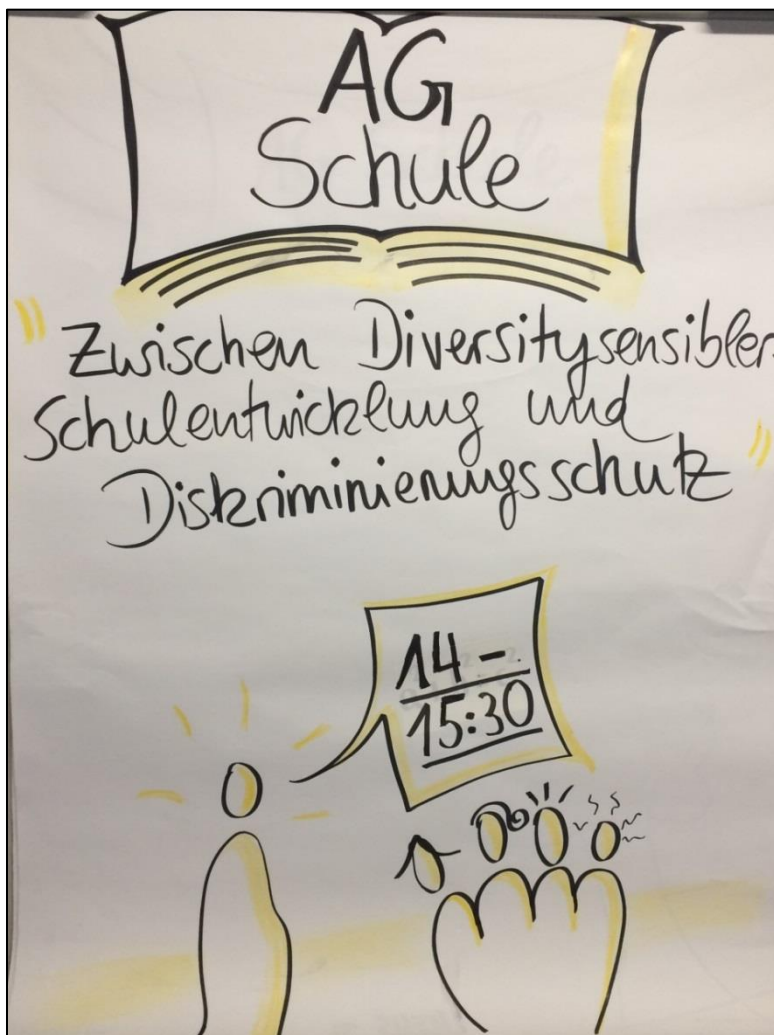 AG
Schule
"Zwischen Diversitysensibler
Schulentwicklung und
Diskriminierungsschutz"
14 -
15:30